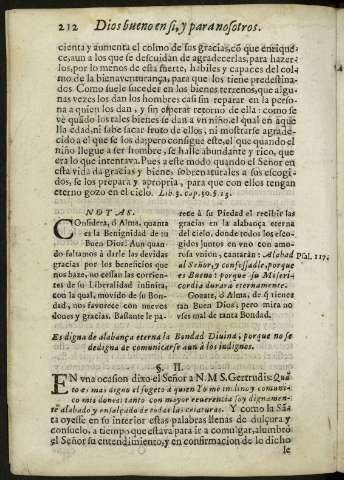 212 Dios bueno en si, y para nosotros.
cienta y aumenta el colmo de sus gracias, cõ que enrique-
ce, aun a los que se descuidan de agradecerlas, para hazer-
los, por lo menos de esta suerte, habiles y capaces del col-
mo de la bienaventurança, para que los tiene predestina-
dos. Como suele suceder en los bienes terrenos, que algu-
nas vezes los dan los hombres casi sin reparar en la perso-
na a quien los dan, y sin esperar retorno de ella: como se
ve quãdo los tales bienes se dan a vn niño, el qual en aque
lla edad, ni sabe sacar fruto de ellos, ni mostrarse agrade-
cido a el que se los da; pero consigue este, el que quando el
niño llegue a ser hombre, se halle abundante y rico, que
era lo que intentava. Pues a este modo quando el Señor en
esta vida da gracias y bienes sobrenaturales a sus escogi-
dos, se los prepara y apropria, para que con ellos tengan
eterno gozo en el cielo. Lib. 3. cap. 30. §. 13.
NOTAS.
COnsidera, ó Alma, quanta
es la Benignidad de tu
Buen Dios! Aun quan-
do faltamos à darle las devidas
gracias por los beneficios que
nos haze, no cessan las corrien-
tes de su Liberalidad infinita,
con la qual, movido de su Bon-
dad, nos favorece con nuevos
dones y gracias. Bastante le pa-
rece à su Piedad el recibir las
gracias en la alabança eterna
del cielo, donde todos los esco-
gidos juntos en vno con amo-
rosa vnion, cantaràn: Alabad
al Señor, y confessadle, porque
es Bueno: porque su Miseri-
cordia durarà eternamente.
Psal. 117.
Gozate, ó Alma, de q̃ tienes
tan Buen Dios; pero mira no
vses mal de tanta Bondad.
Es digna de alabança eterna la Bondad Divina, porque no se
dedigna de comunicarse aun à los indignos.
§. II.
EN vna ocasion dixo el Señor a N.M.S. Gertrudis: Quã-
to es mas digno el sugeto à quien Yo me inclino y comuni-
co mis dones: tanto con mayor reverencia soy dignamen-
te alabado y ensalçado de todas las criaturas. Y como la Sãn-
ta oyesse en su interior estas palabras llenas de dulçura y
consuelo, a tiempo que estava para ir a comulgar, alumbrò
el Señor su entendimiento, y en confirmacion de lo dicho
le